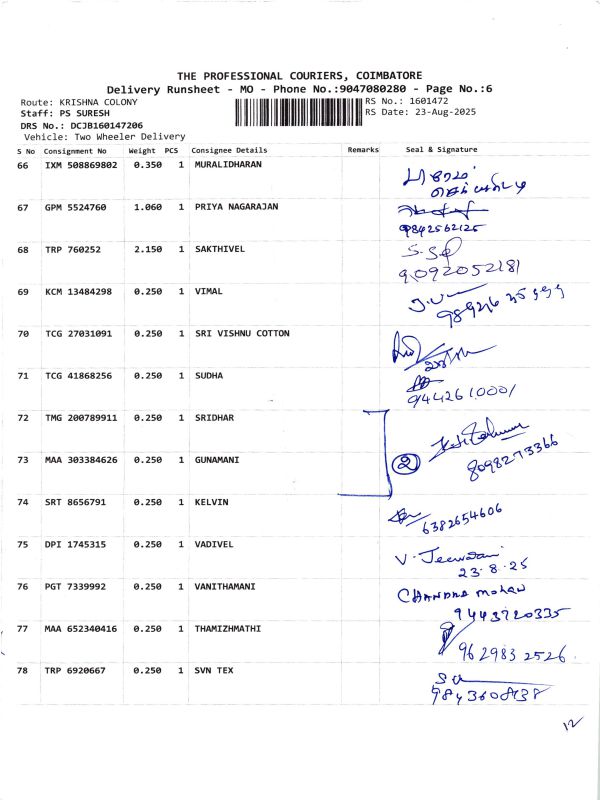 THE PROFESSIONAL COURIERS, COIMBATORE
Delivery Runsheet - MO - Phone No.:9047080280 - Page No.:6
Route: KRISHNA COLONY RS No.: 1601472
Staff: PS SURESH RS Date: 23-Aug-2025
DRS No.: DCJB160147206
Vehicle: Two Wheeler Delivery
S No Consignment No Weight PCS Consignee Details Remarks Seal & Signature
66 IXM 508869802 0.350 1 MURALIDHARAN
67 GPM 5524760 1.060 1 PRIYA NAGARAJAN
9842562125
68 TRP 760252 2.150 1 SAKTHIVEL
9092052181
69 KCM 13484298 0.250 1 VIMAL
70 TCG 27031091 0.250 1 SRI VISHNU COTTON
71 TCG 41868256 0.250 1 SUDHA
9442610001
72 TMG 200789911 0.250 1 SRIDHAR
73 MAA 303384626 0.250 1 GUNAMANI
2
8098273366
74 SRT 8656791 0.250 1 KELVIN
6382654606
75 DPI 1745315 0.250 1 VADIVEL
23.8.25
76 PGT 7339992 0.250 1 VANITHAMANI
CHANDRA MOHAN
9443720335
77 MAA 652340416 0.250 1 THAMIZHMATHI
9629832526
78 TRP 6920667 0.250 1 SVN TEX
9843608738
12